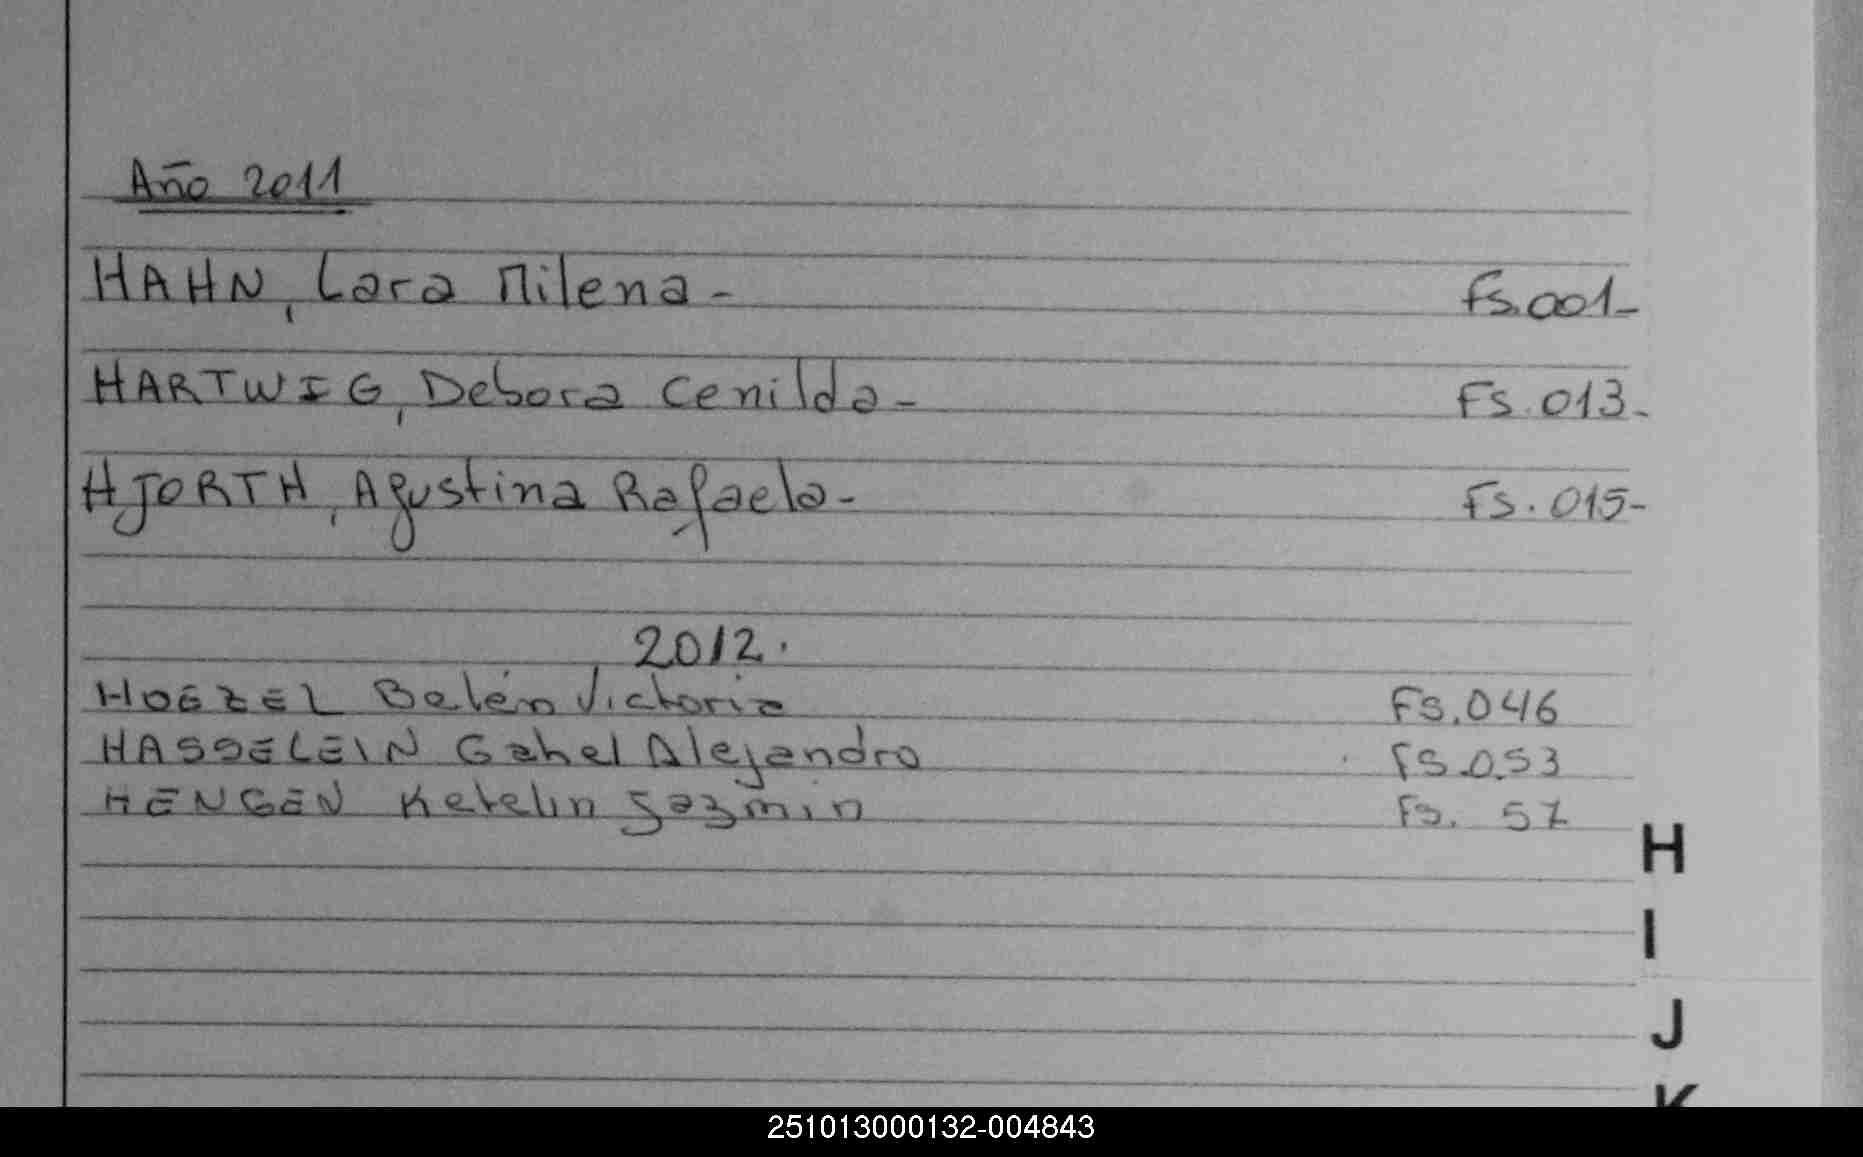 Año 2011
HAHN, Lara Milena - Fs.001-
HARTWIG, Debora Cenilda - Fs. 013-
HJORTH, Agustina Rafaela - Fs. 015-
2012.
HOEZEL Belén Victoria Fs.046
HASSELEIN Gahel Alejandro Fs.053
HENGEN Ketelin Jazmin Fs. 57
H
I
J
K
251013000132-004843